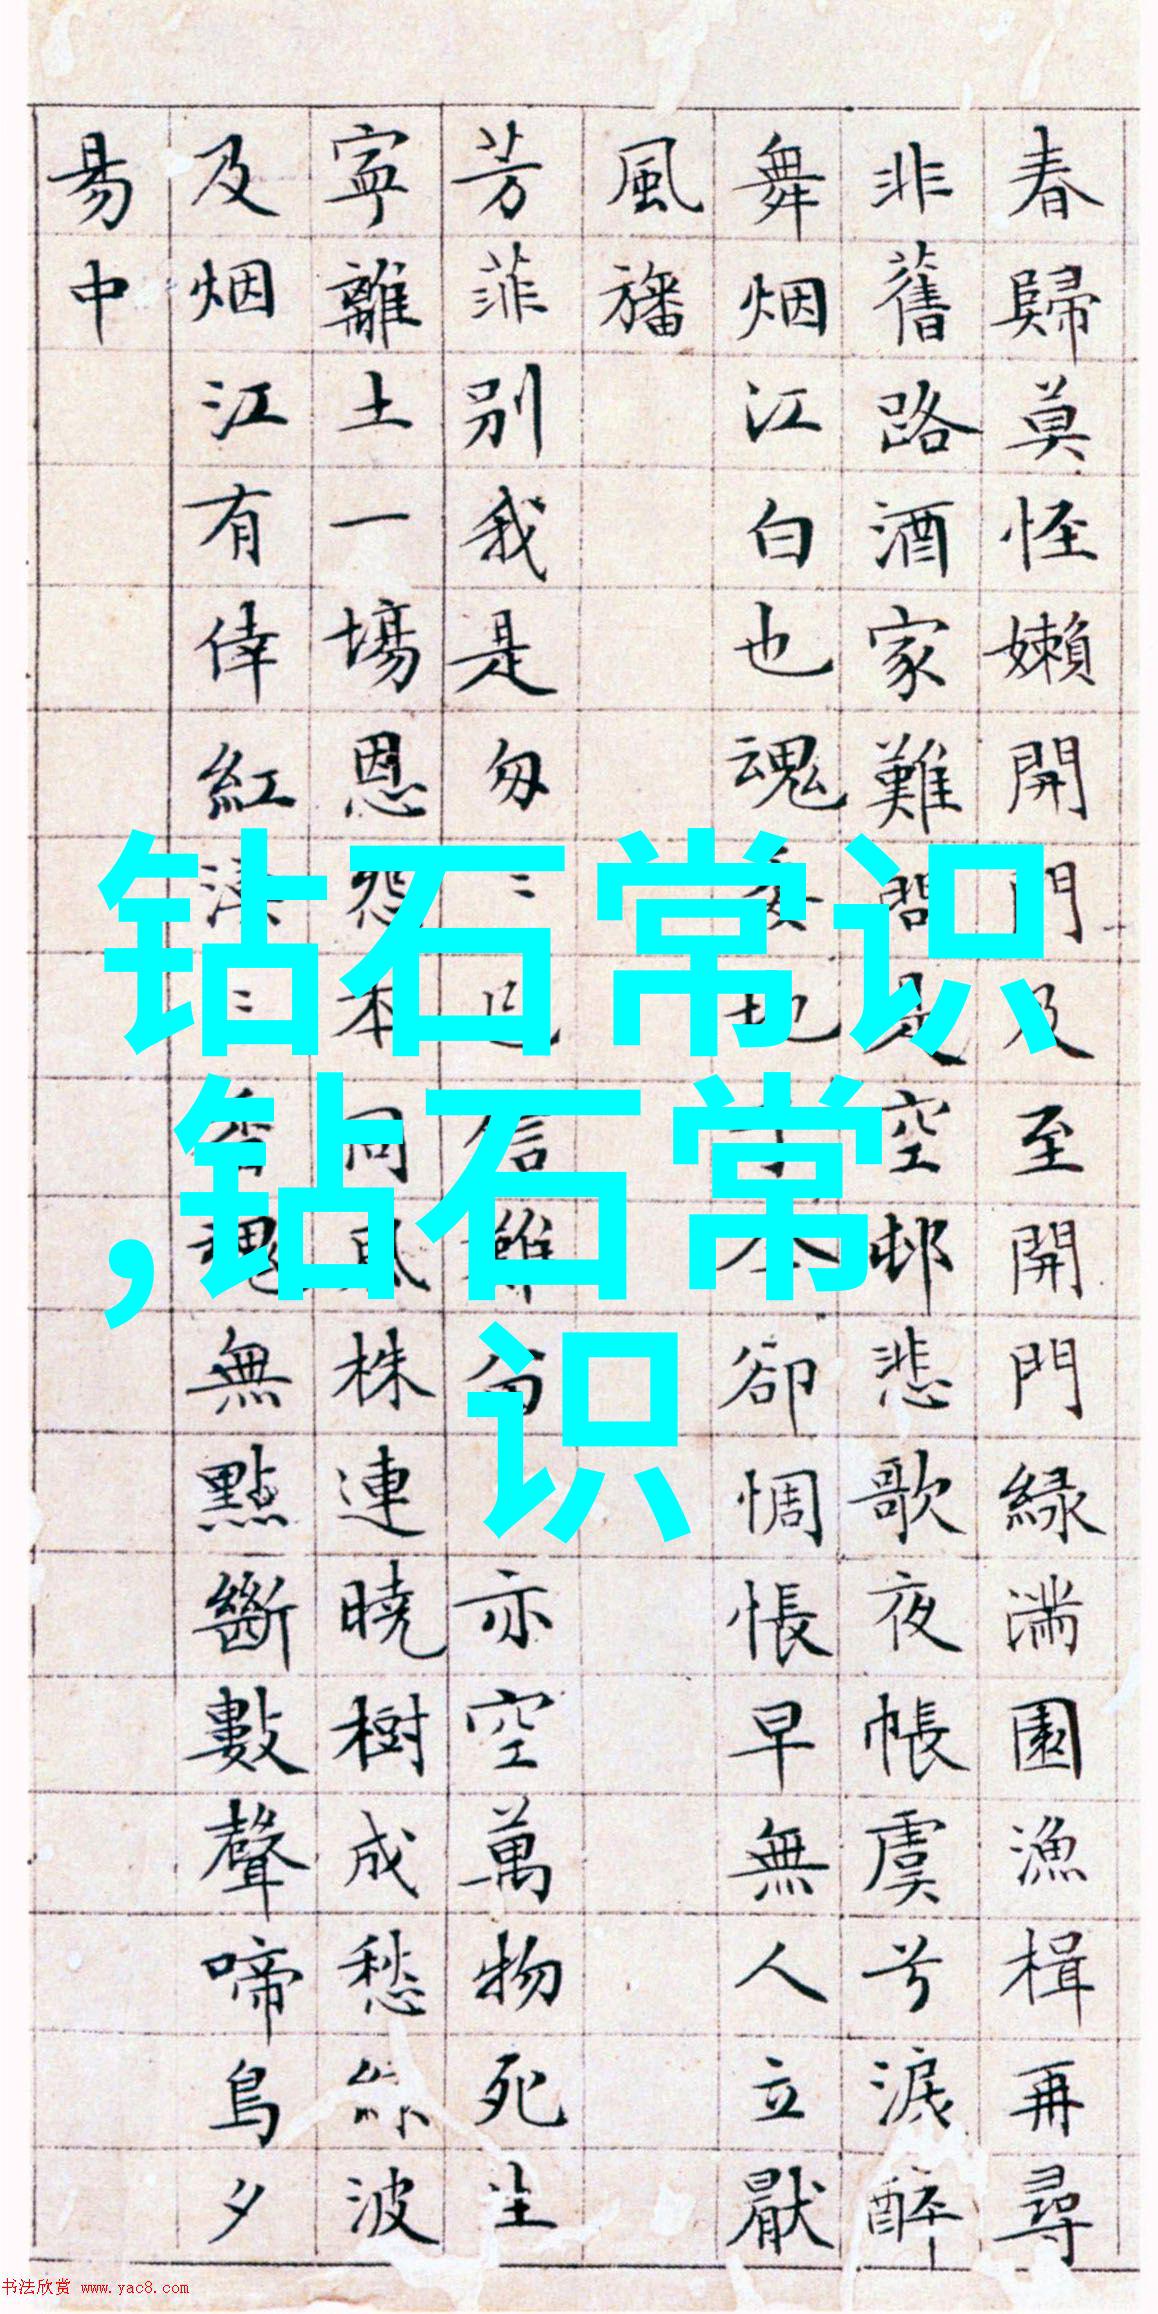 春歸莫怪嬾開門及至開門緑滿園漁楫再尋
非舊路酒家難問是空邨悲歌夜帳虞兮淚醉
舞烟江白也魂委地于今卻惆悵早無人立厭
風旛
芳菲別我是匆〻已信難留亦空萬物死生
寧離土一場恩怨本同風株連曉樹成愁綠波
及烟江有倖紅漠〻香魂無點斷數聲啼鳥夕
易中
钻石常识
,钻石常
识
书法欣赏 www.yac8.com